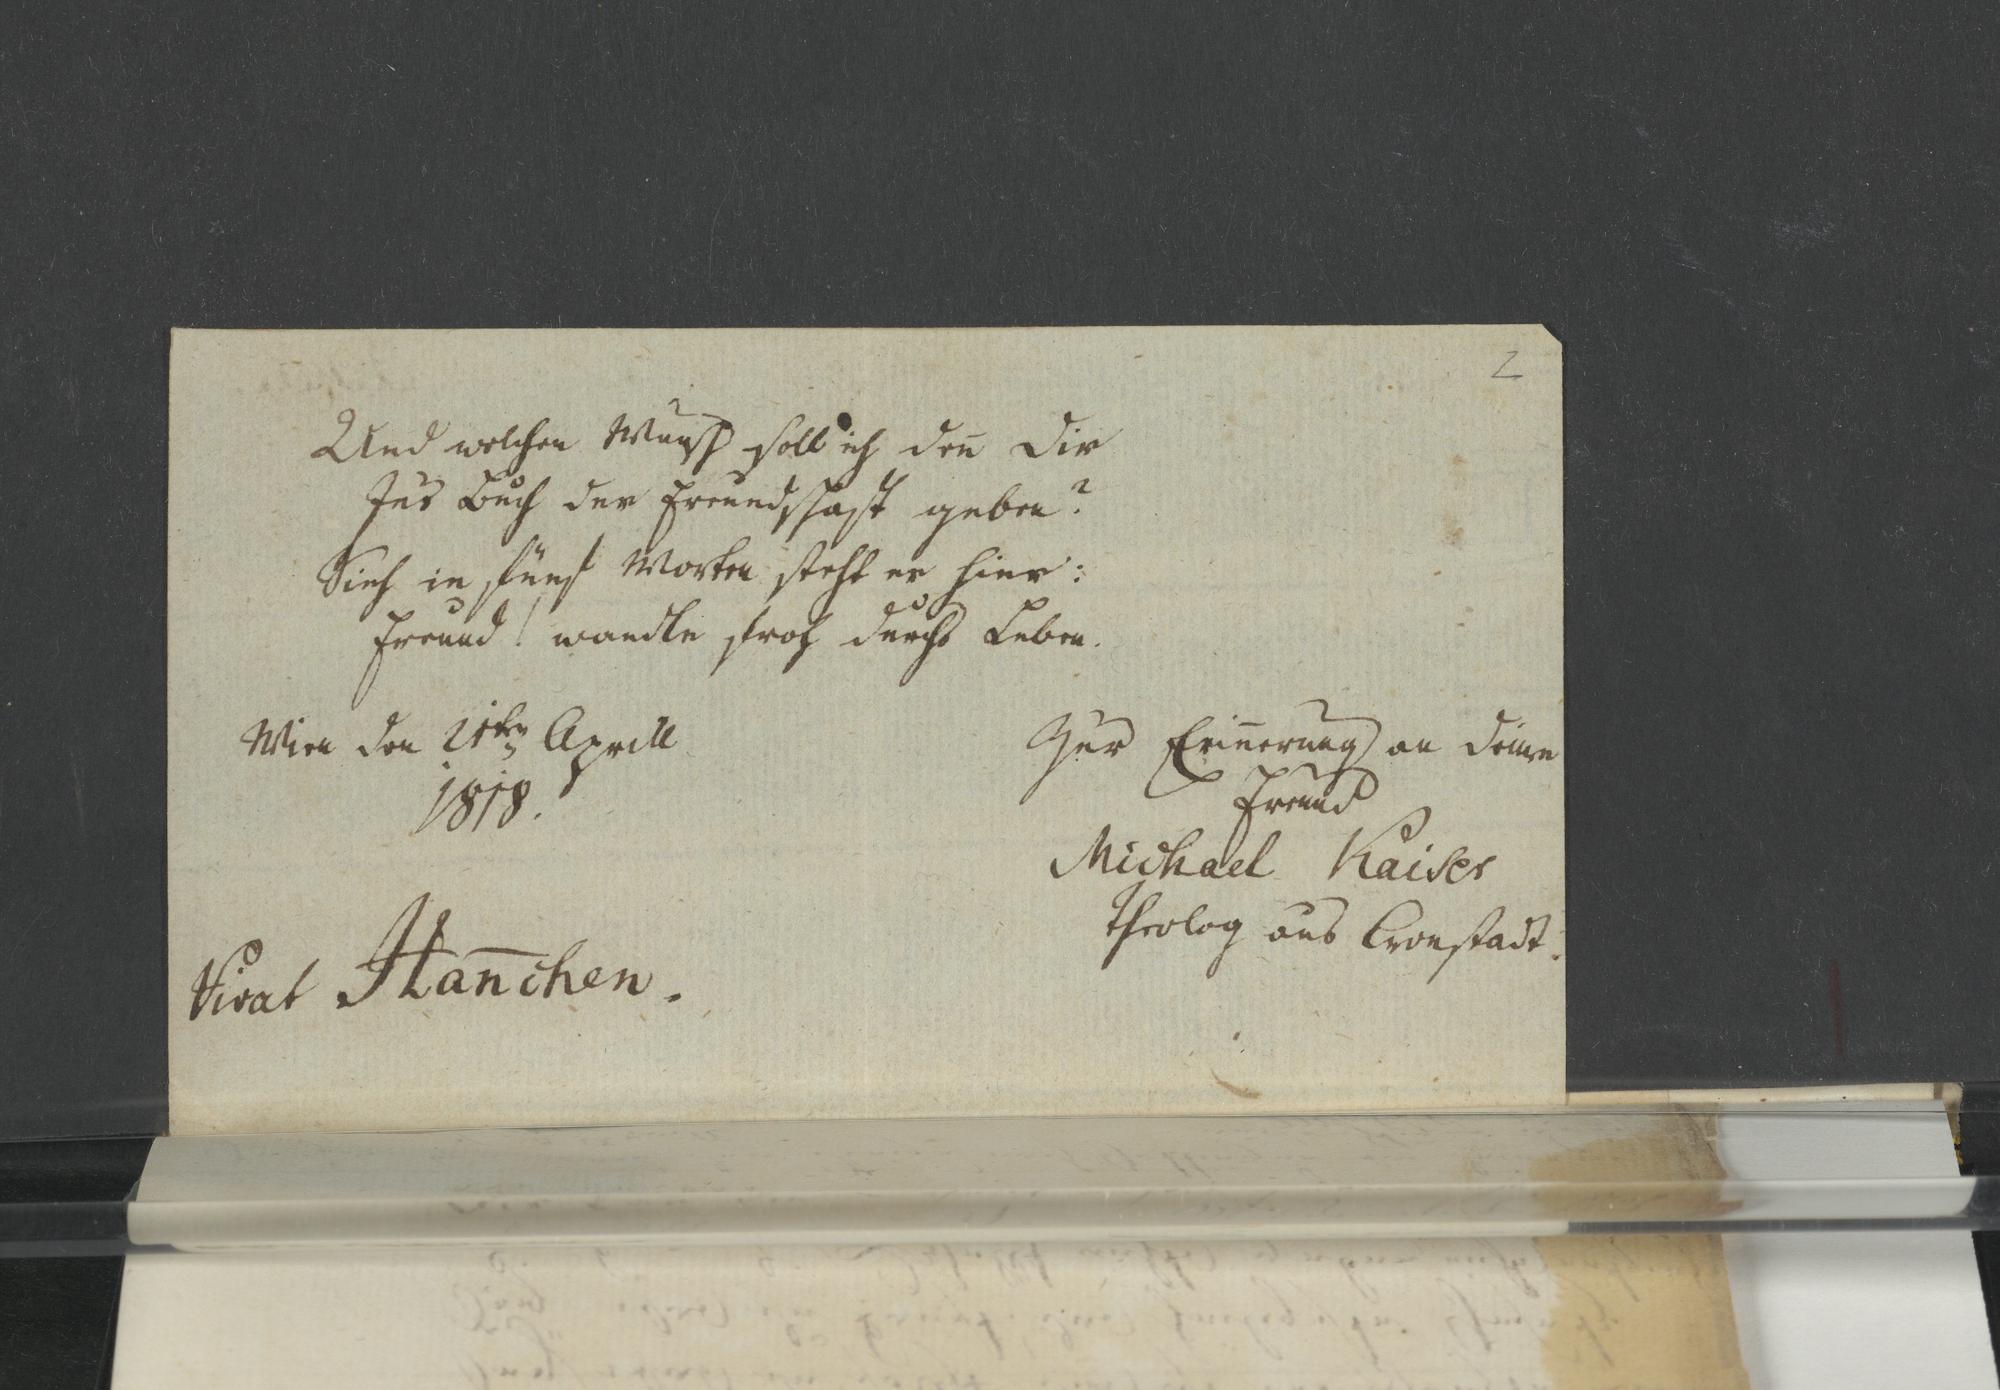 2
Und welchen Wunsch soll ich den̄ Dir
Ins Buch der Freundschaft geben?
Sieh in fünf Worten steht er hier:
Freund! wandle froh durchs Leben.
Wien den 21ten Aprill
1818.
Zur Erin̄erung an deinen
Freund
Michael Kaiser
Theolog aus Cronstadt.
Vivat Han̄chen.